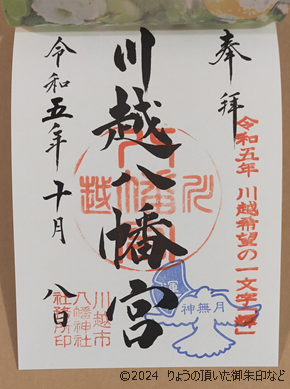 奉拝
令和五年 川越希望の一文字「輝」
川越八幡宮
令和五年十月八日
川越市
八幡神社
社務所印
神無月
©2024 りょうの頂いた御朱印など